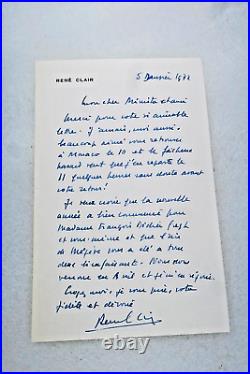 RENÉ CLAIR
5 Janvier 1972
Mon cher Ministre et ami
Merci pour votre si aimable
lettre. J'aurais, moi aussi,
beaucoup aimé vous retrouver
à Monaco le 10 et le fâcheux
hasard veut que j'en reparte le
11 quelques heures sans doute avant
votre retour!
Je veux croire que la nouvelle
année a bien commencé pour
Madame François
et vous-même et que l'air
de Megève vous a été à tous
deux bienfaisant. Nous nous
verrons en Avril et je m'en réjouis.
Croyez-moi, je vous prie, votre
fidèle et dévoué
René Clair